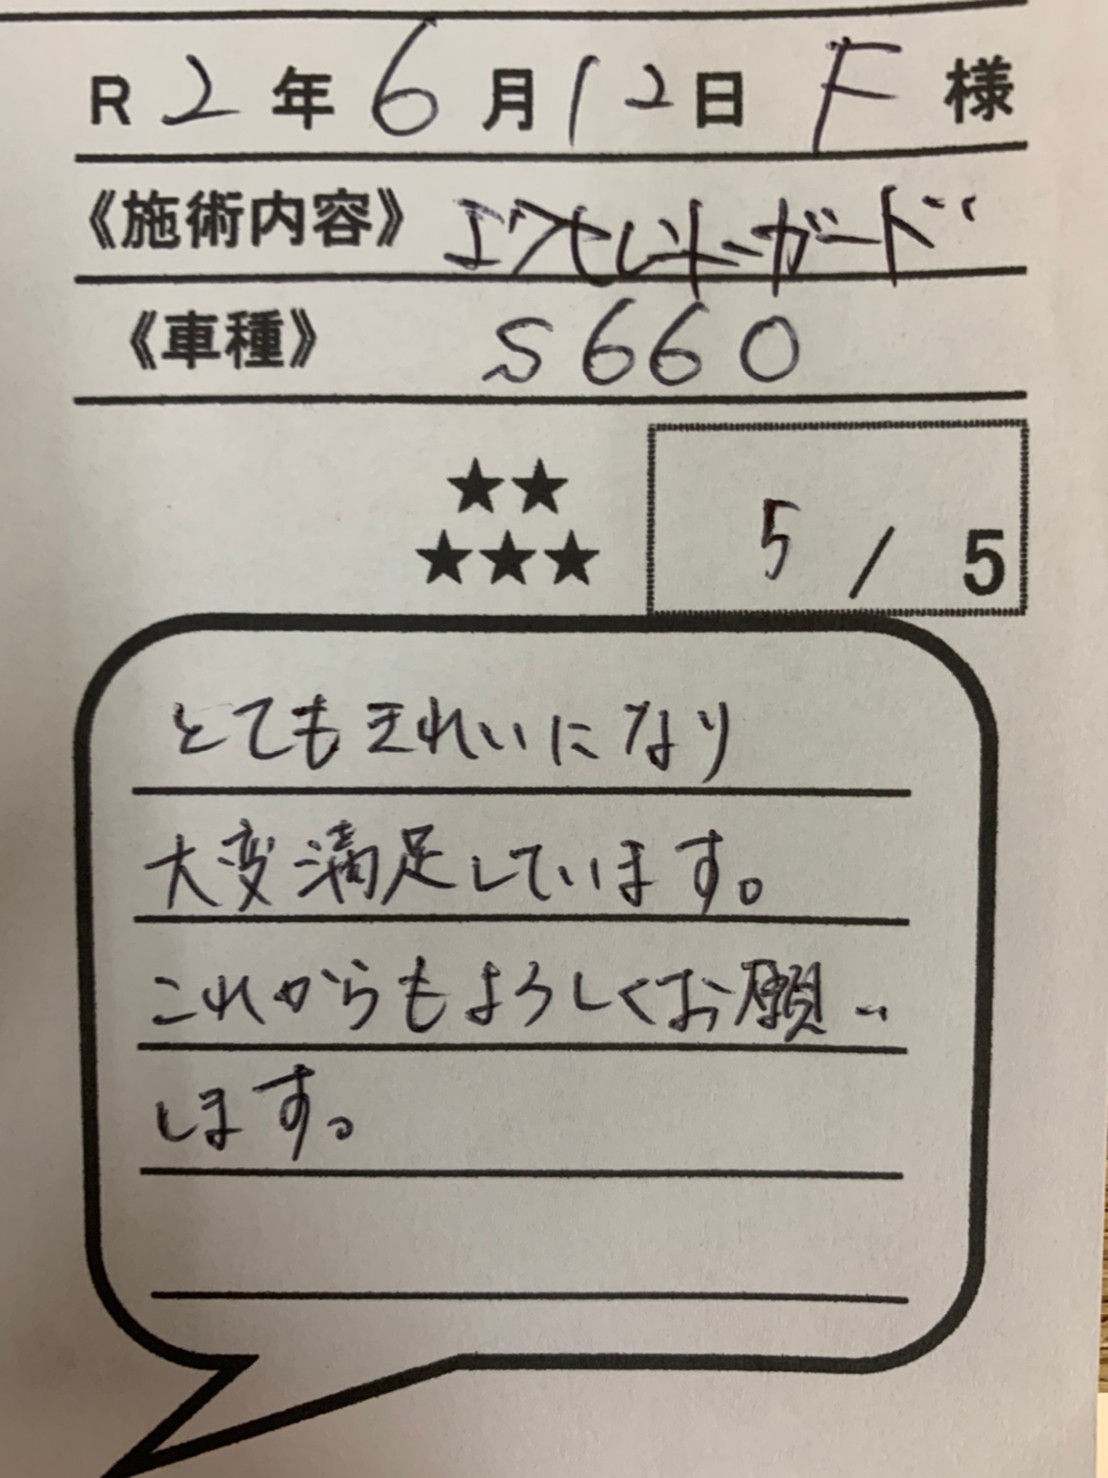 R 2 年 6 月 12 日 F 様
《施術内容》 エクセレントガード
《車種》 S660
★★
★★★
5 / 5
とてもきれいになり
大変満足しています。
これからもよろしくお願い
します。